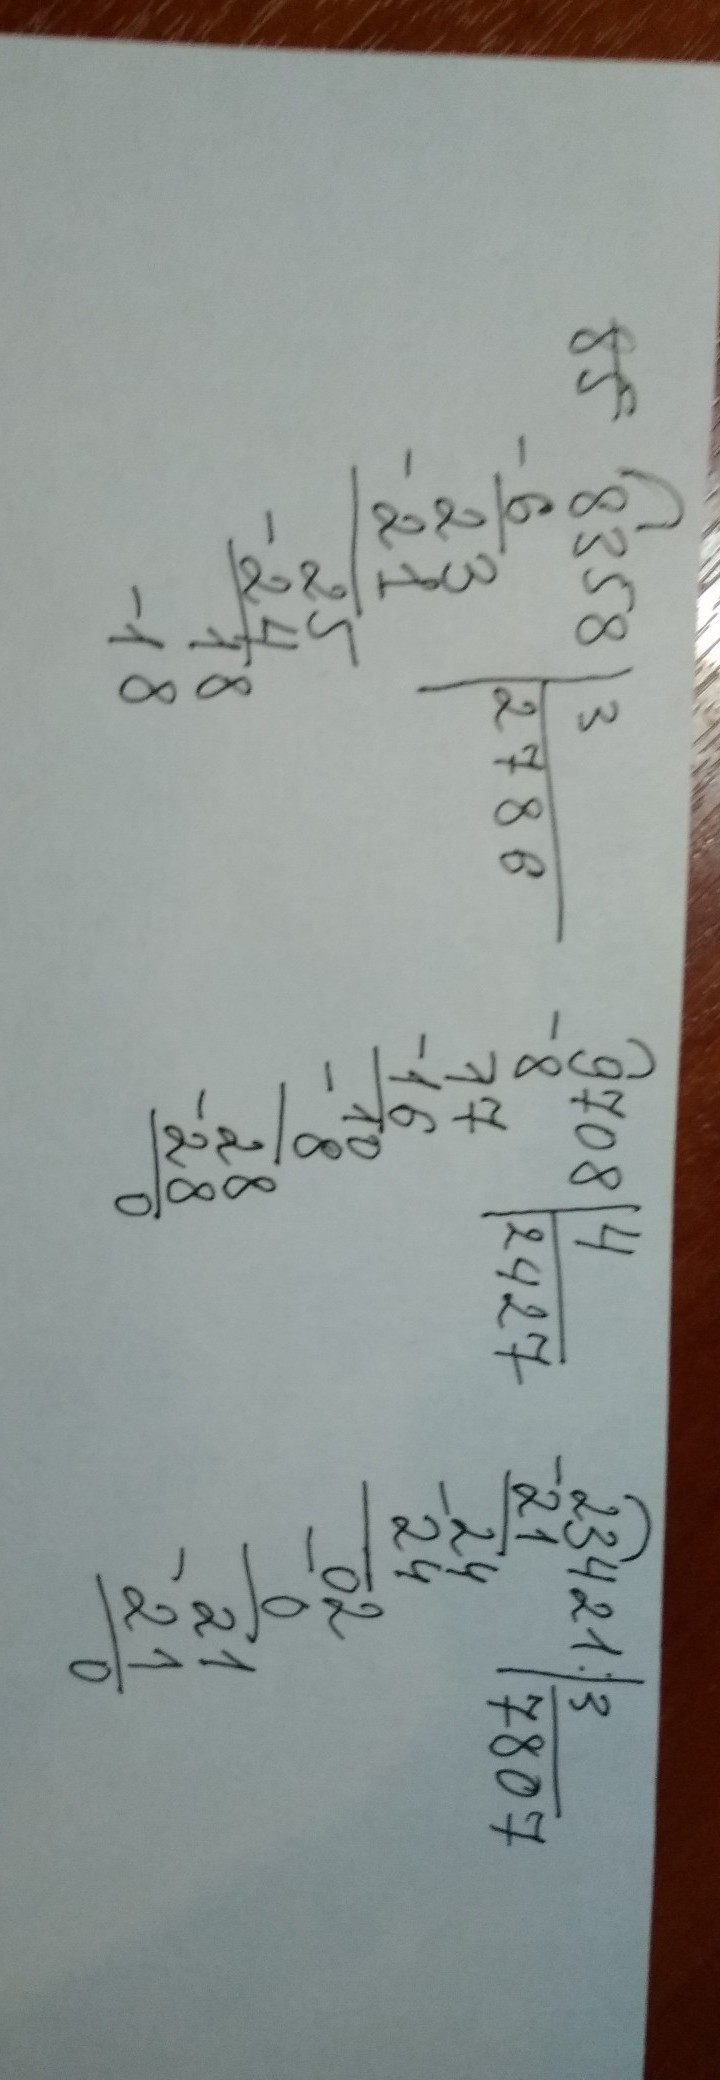 85 8358 | 3
-6 2786
23
-21
25
-24
18
-18
9708 | 4
-8 2427
17
-16
10
-8
28
-28
0
23421 : | 3
-21 7807
24
-24
02
-0
21
-21
0